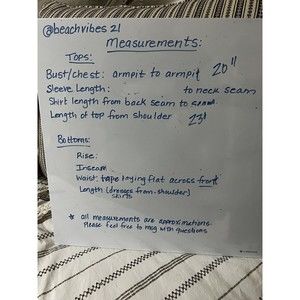 @beachvibes 21
Measurements:
Tops:
Bust/chest: armpit to armpit 20"
Sleeve Length: to neck seam
Shirt length from back seam to
Length of top from shoulder 23"
Bottoms:
Rise:
Inseam
Waist: tape laying flat across front
Length (dresses from shoulder)
skirts
* all measurements are approximations.
Please feel free to msg with questions